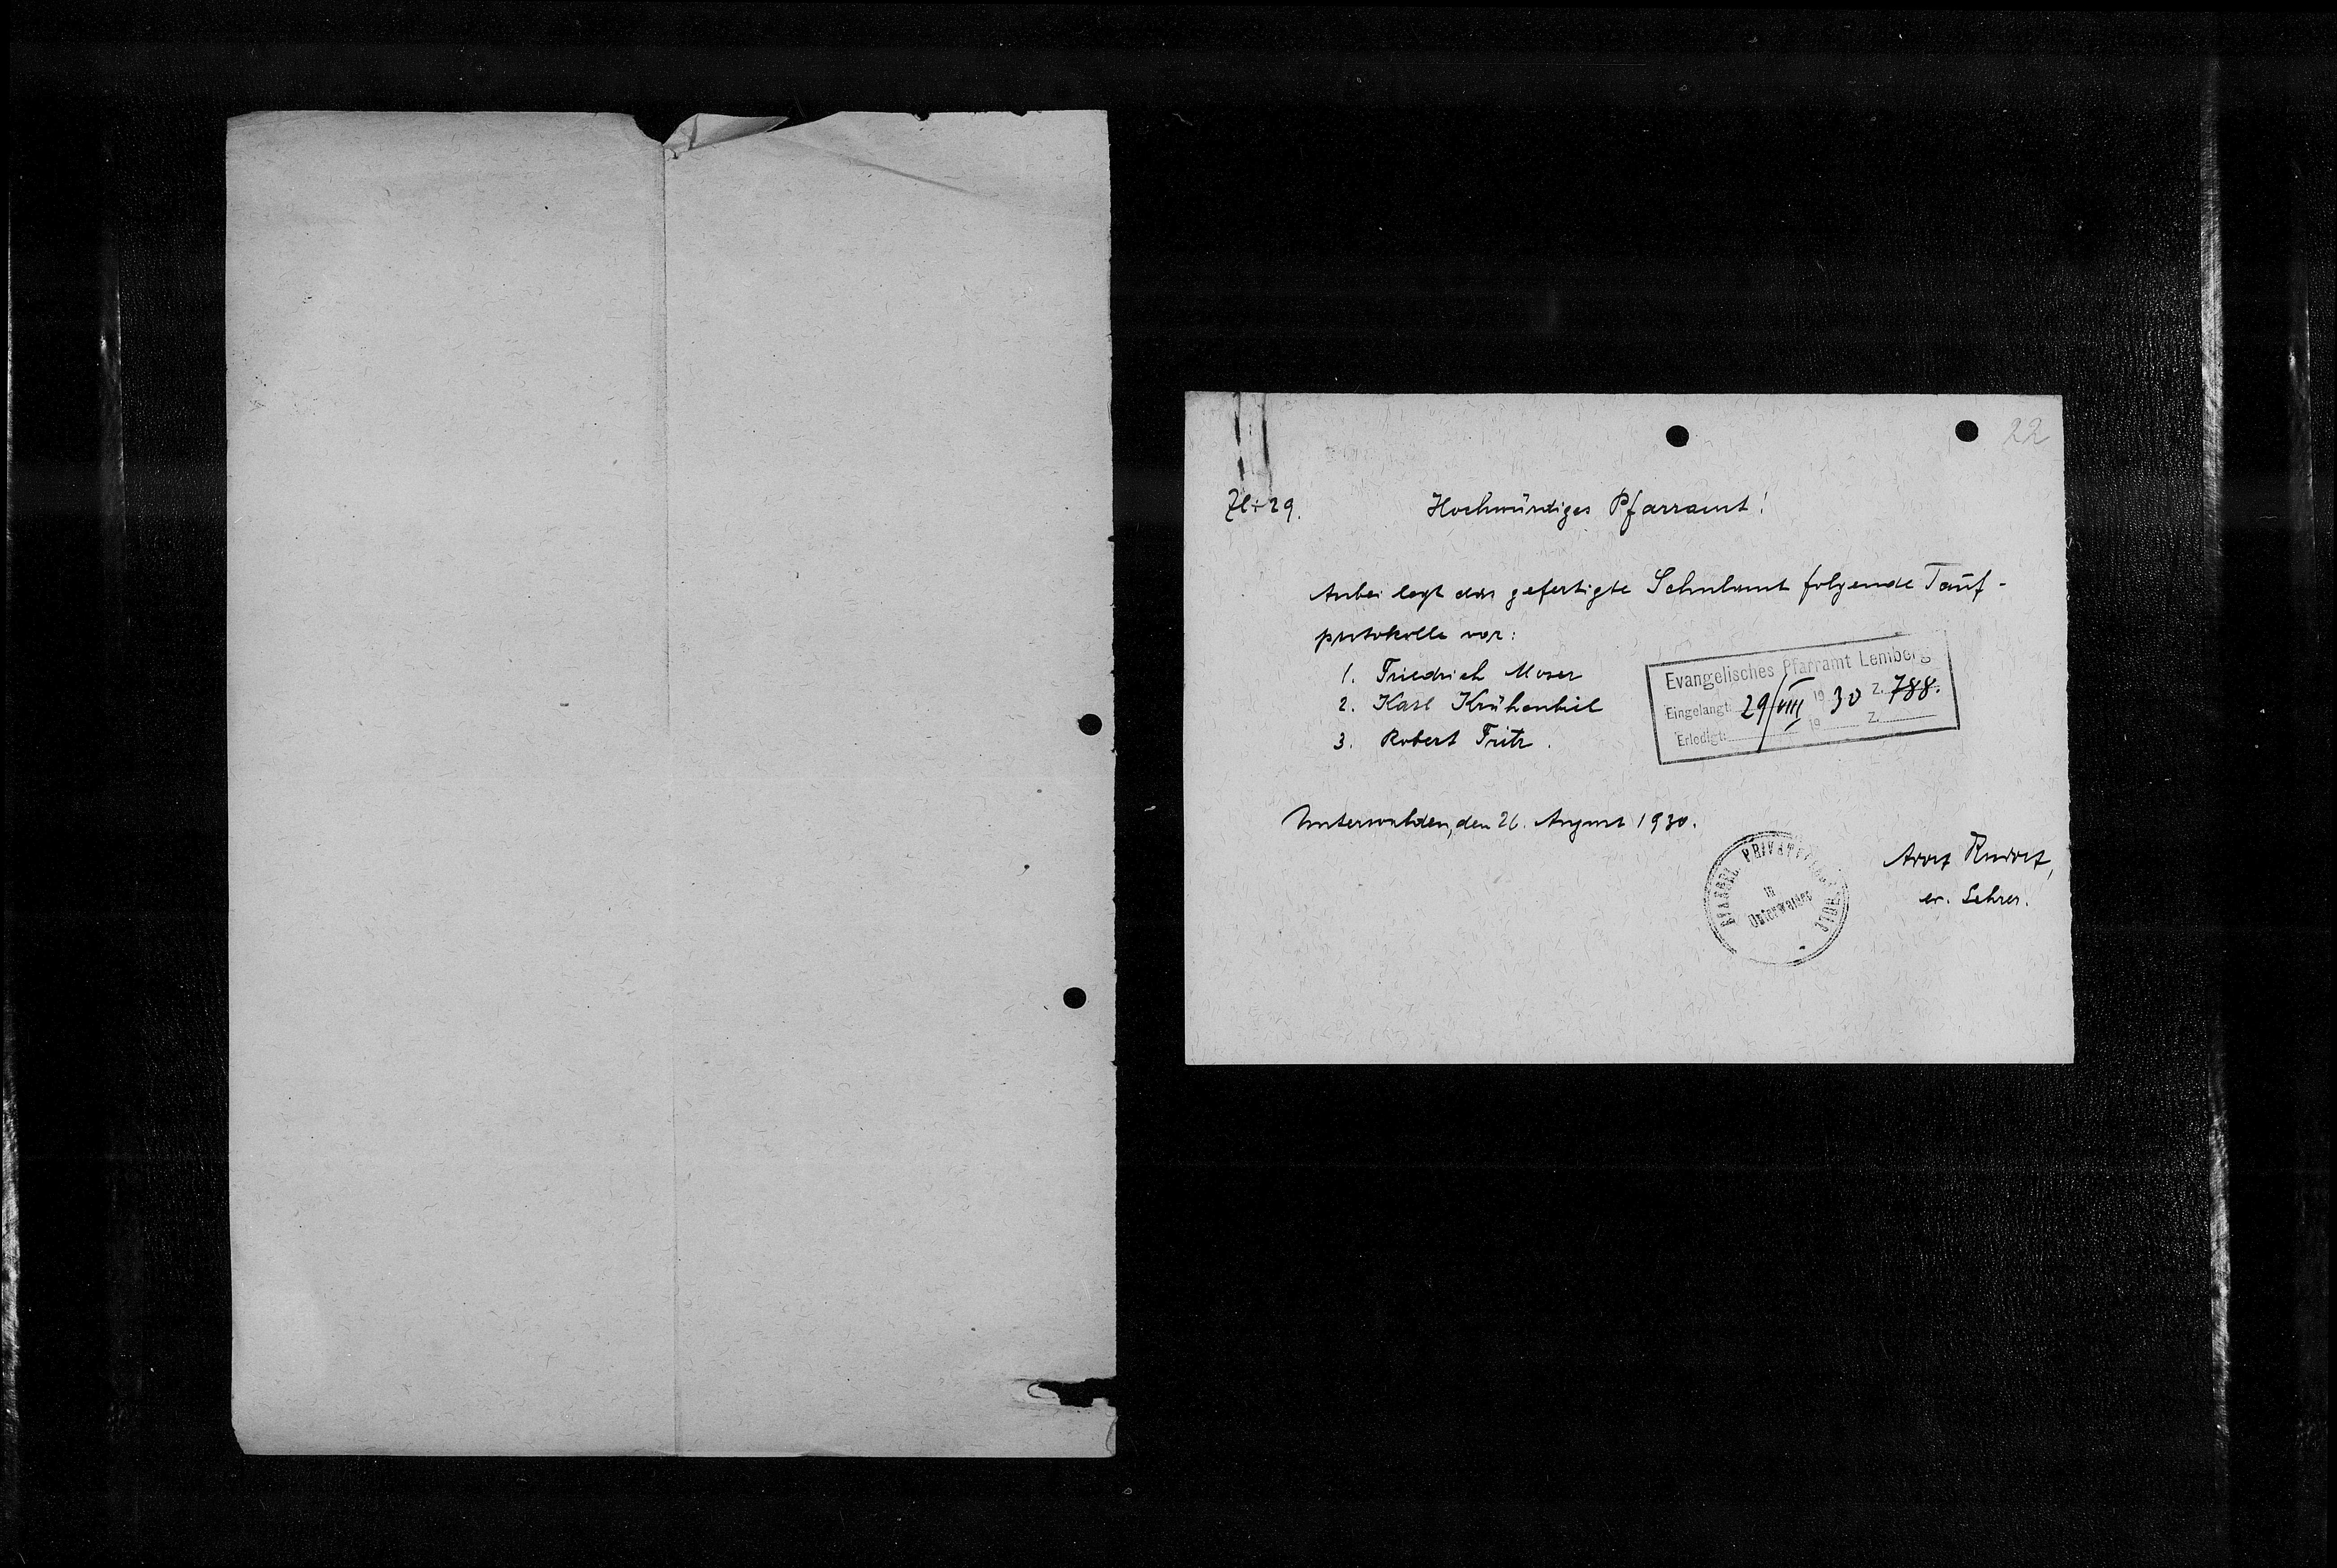 22
Zl: 29.
Hochwürdiges Pfarramt!
Anbei legt das gefertigte Schulamt folgende Tauf-
protokolle vor:
1. Friedrich Moser
2. Karl Krühenbiel
3. Robert Fritz.
Evangelisches Pfarramt Lemberg
Eingelangt: 29/VIII 19 30 Z. 788.
Erledigt: 19 Z.
Unterwalden, den 26. August 1930.
EVANGEL. PRIVAT
in
Unterwalden
Adolf Rudolf,
ev. Lehrer.